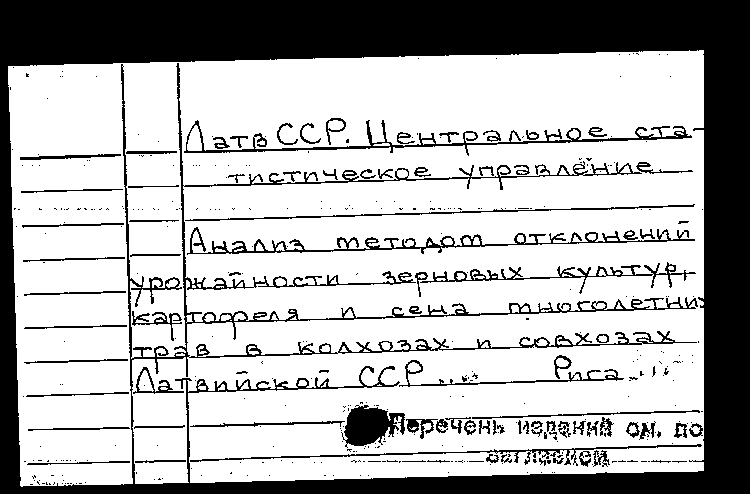 Латв ССР. Центральное ста-
тистическое управление.
Анализ методом отклонений
урожайности зерновых культур,
картофеля и сена многолетних
трав в колхозах и совхозах
Латвийской ССР ... Рига ...
Перечень изданий см. по
заглавием